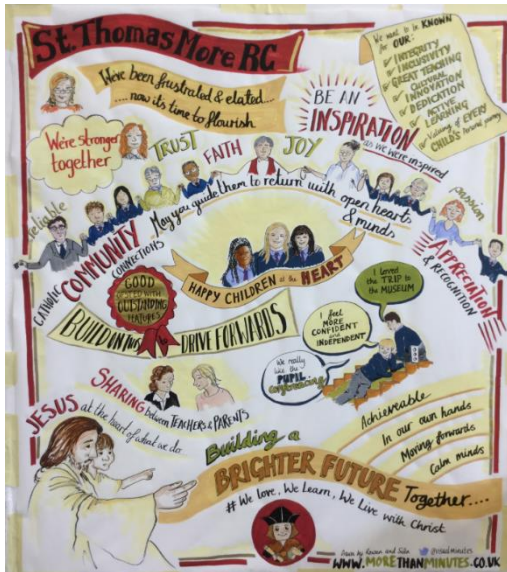 St. Thomas More RC
We've been frustrated & elated....
.... now its time to flourish
We want to be KNOWN
for OUR:
INTEGRITY
INCLUSIVITY
GREAT TEACHING
CULTURAL
INNOVATION
DEDICATION
ACTIVE
LEARNING
Valuing of EVERY
CHILD'S personal journey
BE AN
INSPIRATION
as we were inspired
We're stronger
together
TRUST
FAITH
JOY
reliable
passion
May you guide them to return with open hearts
& minds
CATHOLIC
COMMUNITY
CONNECTIONS
APPRECIATION
& RECOGNITION
HAPPY CHILDREN at the HEART
GOOD
WITH
OUTSTANDING
FEATURES
BUILD ON THIS
to
DRIVE FORWARDS
I loved
the TRIP to
the MUSEUM
I feel
MORE
CONFIDENT
and
INDEPENDENT
We really
like the
PUPIL
conferencing
SHARING between TEACHERS & PARENTS
JESUS at the heart of what we do.
Achieveable
In our own hands
Moving forwards
Calm minds
Building a
BRIGHTER FUTURE Together....
# We Love, We Learn, We Live with Christ
Drawn by
and
WWW.MORETHANMINUTES.CO.UK